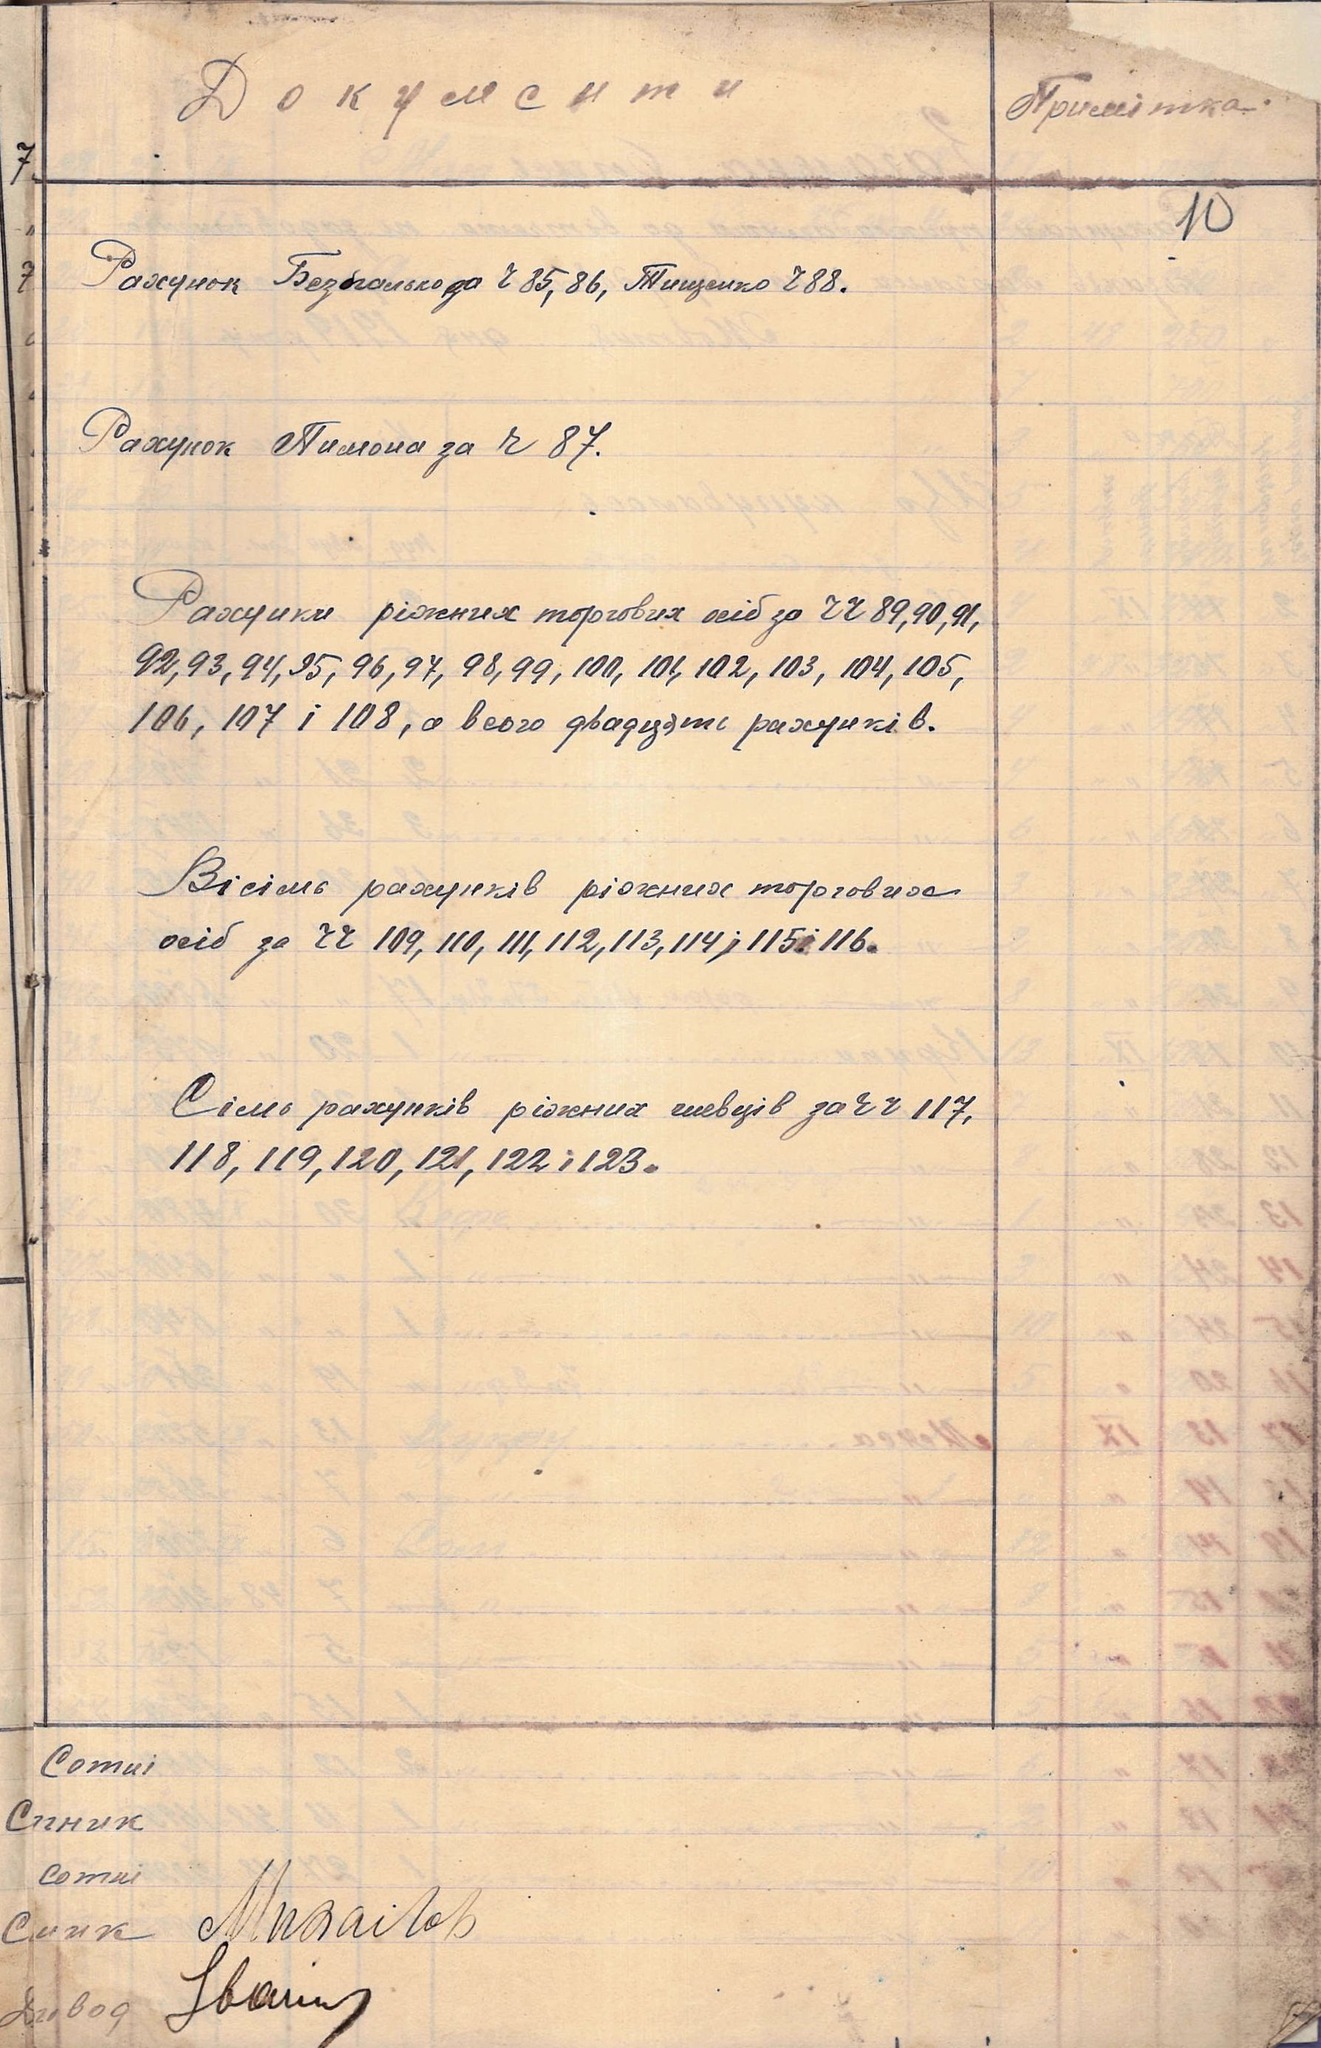 Документи
Примітка.
10
Рахунок за Ч 85, 86, Тищенко Ч 88.
Рахунок Пимона за Ч 87.
Рахунки ріжних торгових осіб за ЧЧ 89, 90, 91,
92, 93, 94, 95, 96, 97, 98, 99, 100, 101, 102, 103, 104, 105,
106, 107 і 108, а всого двадцять рахунків.
Вісімь рахунків ріжних торгових
осіб за ЧЧ 109, 110, 111, 112, 113, 114, 115 і 116.
Сімь рахунків ріжних шевців за ЧЧ 117,
118, 119, 120, 121, 122 і 123.
Сотні
Сотні
Михайлов